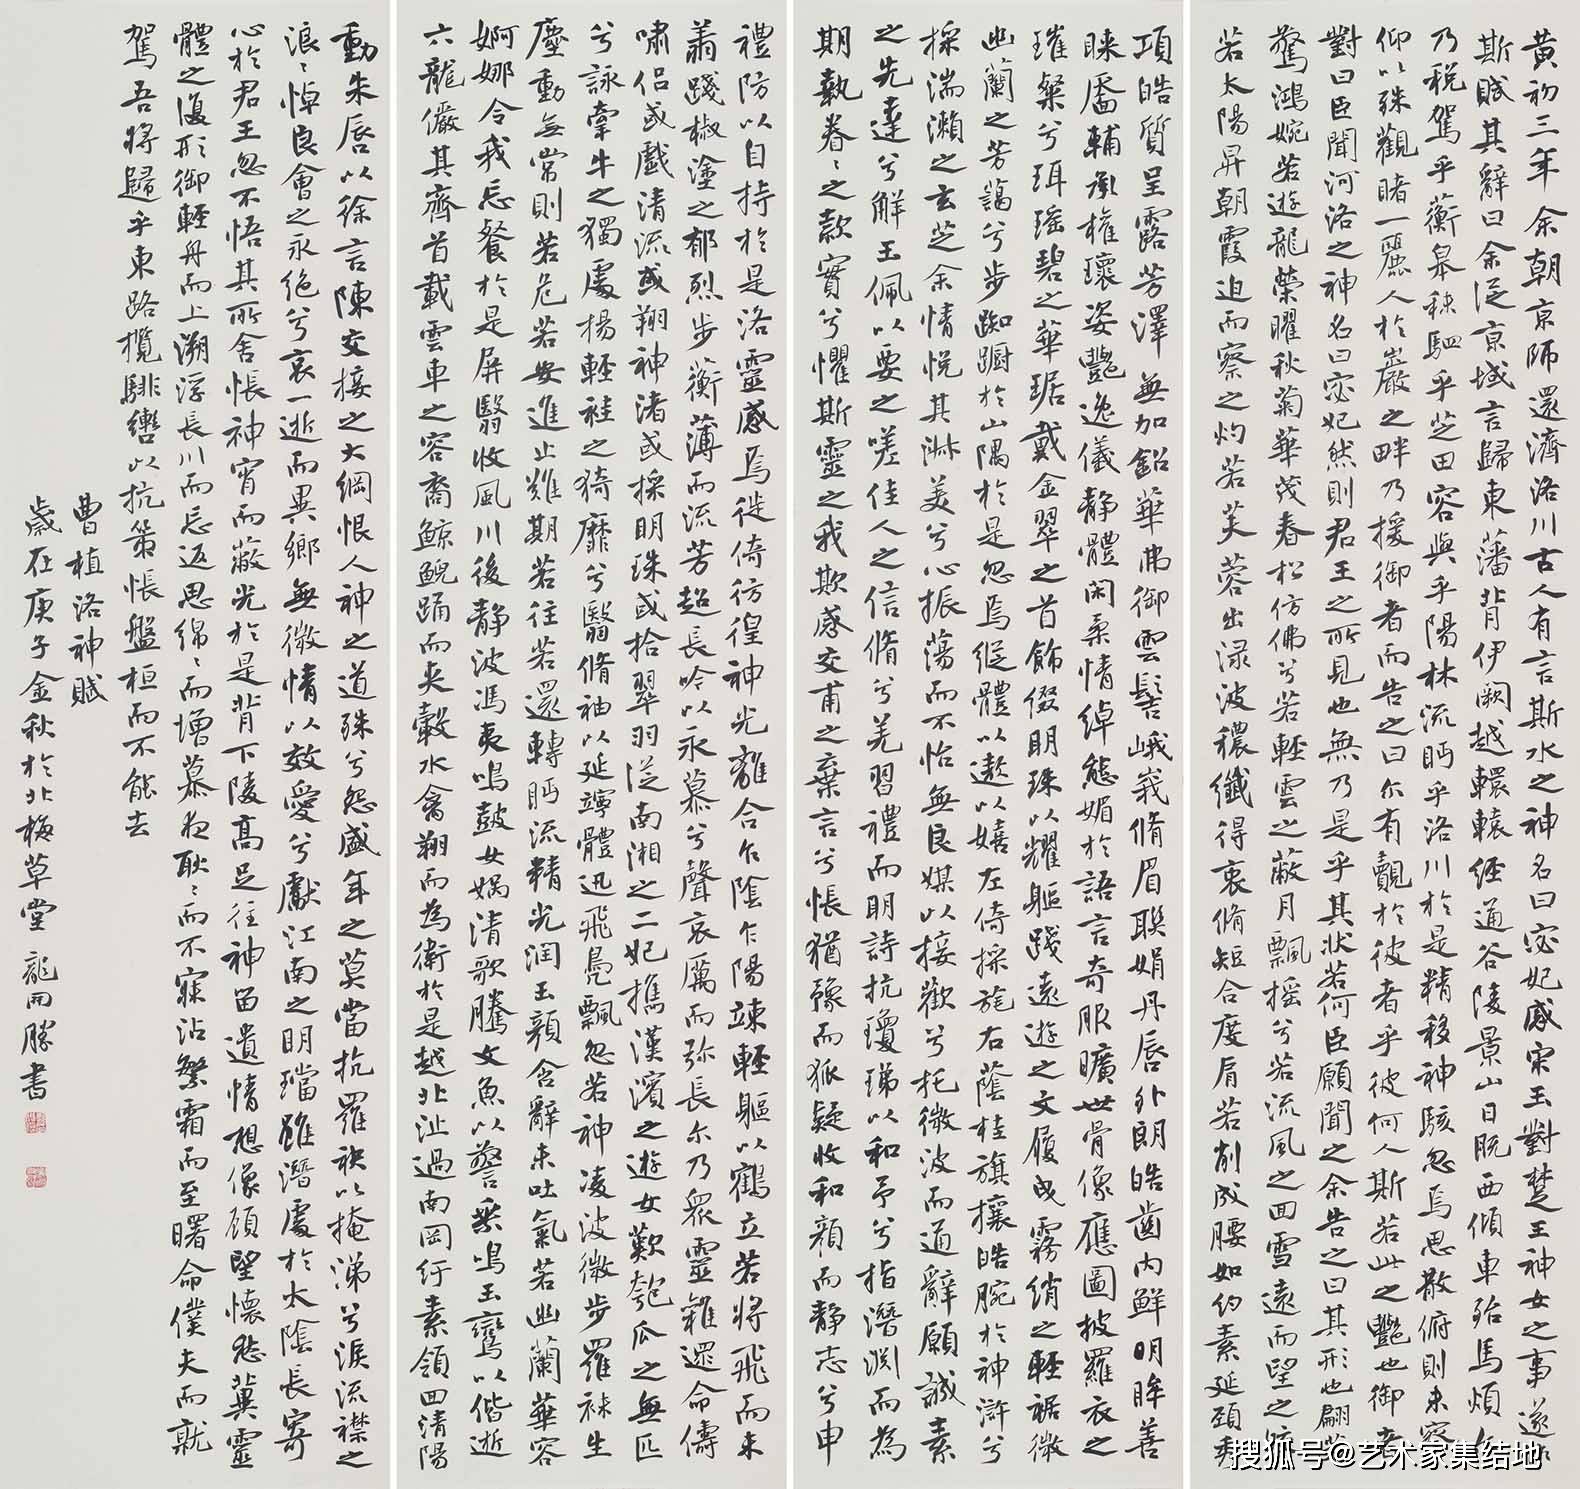 黃初三年余朝京師還濟洛川古人有言斯水之神名曰宓妃感宋玉對楚王神女之事遂
斯賦其辭曰余從京域言歸東藩背伊闕越轘轅經通谷陵景山日既西傾車殆馬煩
乃稅駕乎蘅皋秣駟乎芝田容與乎陽林流眄乎洛川於是精移神駭忽焉思散俯則未察
仰以殊觀睹一麗人於巖之畔乃援御者而告之曰尔有覿於彼者乎彼何人斯若此之豔也御者
對曰臣聞河洛之神名曰宓妃然則君王之所見也無乃是乎其狀若何臣願聞之余告之曰其形也翩若
驚鴻婉若遊龍榮曜秋菊華茂春松仿佛兮若輕雲之蔽月飄搖兮若流風之回雪遠而望之皎
若太陽昇朝霞迫而察之灼若芙蓉出淥波穠纖得衷脩短合度肩若削成腰如約素延頸秀
項皓質呈露芳澤無加鉛華弗御雲髻峨峩脩眉聯娟丹唇外朗皓齒內鮮明眸善
睞靨輔承權瓌姿豔逸儀靜體閑柔情綽態媚於語言奇服曠世骨像應圖披羅衣之
璀粲兮珥瑤碧之華琚戴金翠之首飾綴明珠以耀軀踐遠遊之文履曳霧綃之輕裾微
幽蘭之芳藹兮步踟躕於山隅於是忽焉縱體以遨以嬉左倚採旄右蔭桂旗攘皓腕於神滸兮
採湍瀨之玄芝余情悅其淑美兮心振蕩而不怡無良媒以接歡兮托微波而通辭願誠素
之先達兮解玉佩以要之嗟佳人之信脩兮羌習禮而明詩抗瓊珶以和予兮指潛淵而為
期執眷〻之款實兮懼斯靈之我欺感交甫之棄言兮悵猶豫而狐疑收和顏而靜志兮申
禮防以自持於是洛靈感焉徙倚彷徨神光離合乍陰乍陽竦輕軀以鶴立若將飛而未
翥踐椒塗之郁烈步蘅薄而流芳超長吟以永慕兮聲哀厲而弥長尔乃眾靈雜遝命儔
嘯侶或戲清流或翔神渚或採明珠或拾翠羽從南湘之二妃攜漢濱之遊女歎匏瓜之無匹
兮詠牽牛之獨處揚輕袿之猗靡兮翳脩袖以延竚體迅飛鳧飄忽若神凌波微步羅襪生
塵動無常則若危若安進止難期若往若還轉眄流精光潤玉顏含辭未吐氣若幽蘭華容
婀娜令我忘餐於是屏翳收風川後靜波馮夷鳴鼓女媧清歌騰文魚以警乘鳴玉鸞以偕逝
六龍儼其齊首載雲車之容裔鯨鯢踊而夾轂水禽翔而為衛於是越北沚過南岡紆素領回清陽
動朱唇以徐言陳交接之大綱恨人神之道殊兮怨盛年之莫當抗羅袂以掩涕兮淚流襟之
浪〻悼良會之永絕兮哀一逝而異鄉無微情以效愛兮獻江南之明璫雖潛處於太陰長寄
心於君王忽不悟其所舍悵神宵而蔽光於是背下陵高足往神留遺情想像顧望懷愁冀靈
體之復形御輕舟而上溯浮長川而忘返思綿〻而增慕夜耿〻而不寐沾繁霜而至曙命僕夫而就
駕吾將歸乎東路攬騑轡以抗策悵盤桓而不能去
曹植洛神賦
歲在庚子金秋於北梅草堂 龍開勝書
搜狐号@艺术家集结地